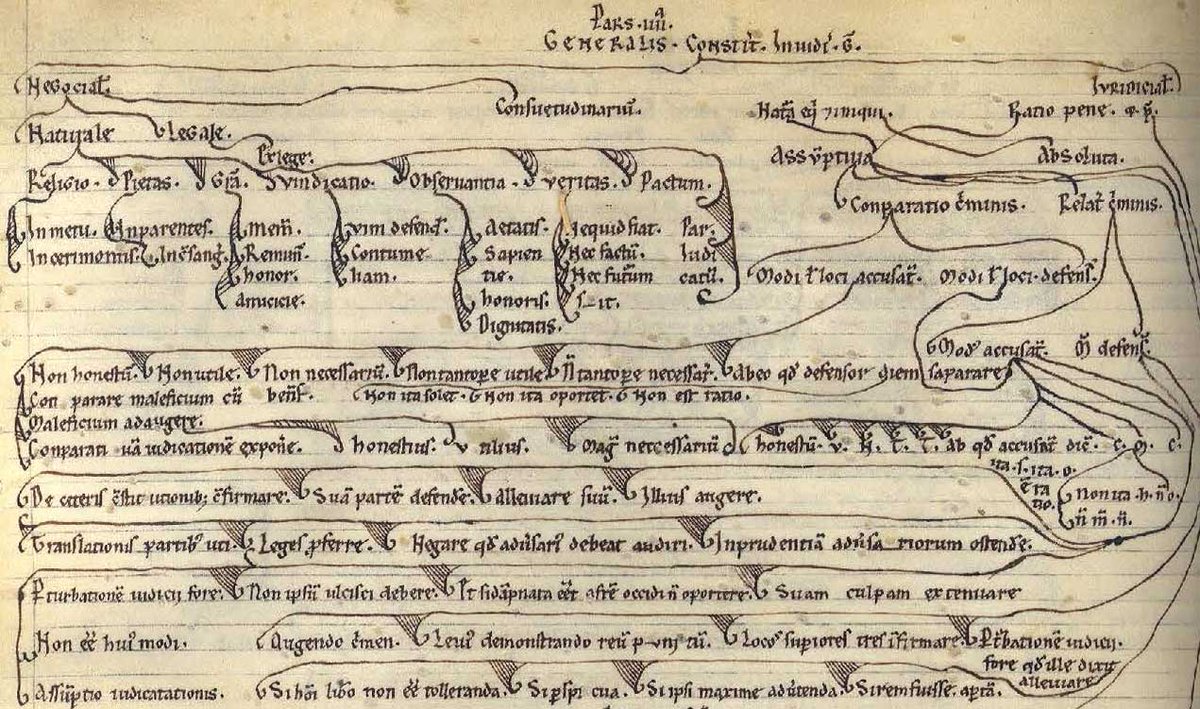 Pars .iiii.a
Generalis . Constit̄. Iuridi᷒. G̅.
Negocial̄. Iuridicial̄.
Consuetudinariū. Nat̄a eq̄ ꝛ iniqui. Ratio pene. & p̄.
Naturale Legale.
Ex lege. Assūptiva Absoluta.
Religio. Pietas. Gr̄a. Vindicatio. Observantia. Veritas. Pactum.
Conparatio c̄minis. Relat̄ c̄minis.
In metu. In parentes. Mem̄. Vim defend̄. Aetatis. Ne quid fiat. Par.
In cerimoniis. In c̄sanḡ. Remun̄. Contume Sapien Nec factū. Iudi
honor. liam. tie. Nec futurum catū. Modi ł loci accusat̄. Modi ł loci defens̄.
amicicie. honoris. sit.
Dignitatis.
Mod᷒ accusat̄. M̄ defens̄.
Non honestū. Non utile. Non necessariū. Non tantopere utile. N̄ tantopere necessar̄. Ab eo qd̄ defensor diem saparare
Con parare maleficium cū benef̄. Non ita solet. Non ita oportet. Non est ratio.
Maleficium adaugere.
Conparati vā iudicationē expone. honestius. utilius. Mag᷒ neccessariū honestū. v. N̄. T̄. T̄. Ab qd̄ accusat̄ diē. c. o. c.
ita. s. ita. o.
ē ra
tio. non ita. h. n̄o.
n̄ m̄. n̄.
De ceteris c̄stit utionib; c̄firmare. Suā partē defende. Alleviare suū. Illius augere.
Translationis partib᷒ uti. Leges p̄ferre. Negare qd̄ adv̄sari᷒ debeat audiri. Inprudentiā adv̄sa riorum ostende.
P̄turbationē iudicii fore. Non ipsū ulcisci debere. Et si dāpnata eēt afr̄e occidi n̄ oportere. Suam culpam extenuare
Non eē hui᷒ modi. Augendo c̄men. Levi᷒ demonstrando reū puni tū. Locos supiores tres īfirmare. P̄t̄bationē iudicii.
fore qd̄ ille dixit
alleviare
Assūptio iudicatationis. Si hōi lib̄o non eē tolleranda. Si p̄spi cua. Si ipsi maxime adv̄tenda. Si rem fuisse. ap̄tā.